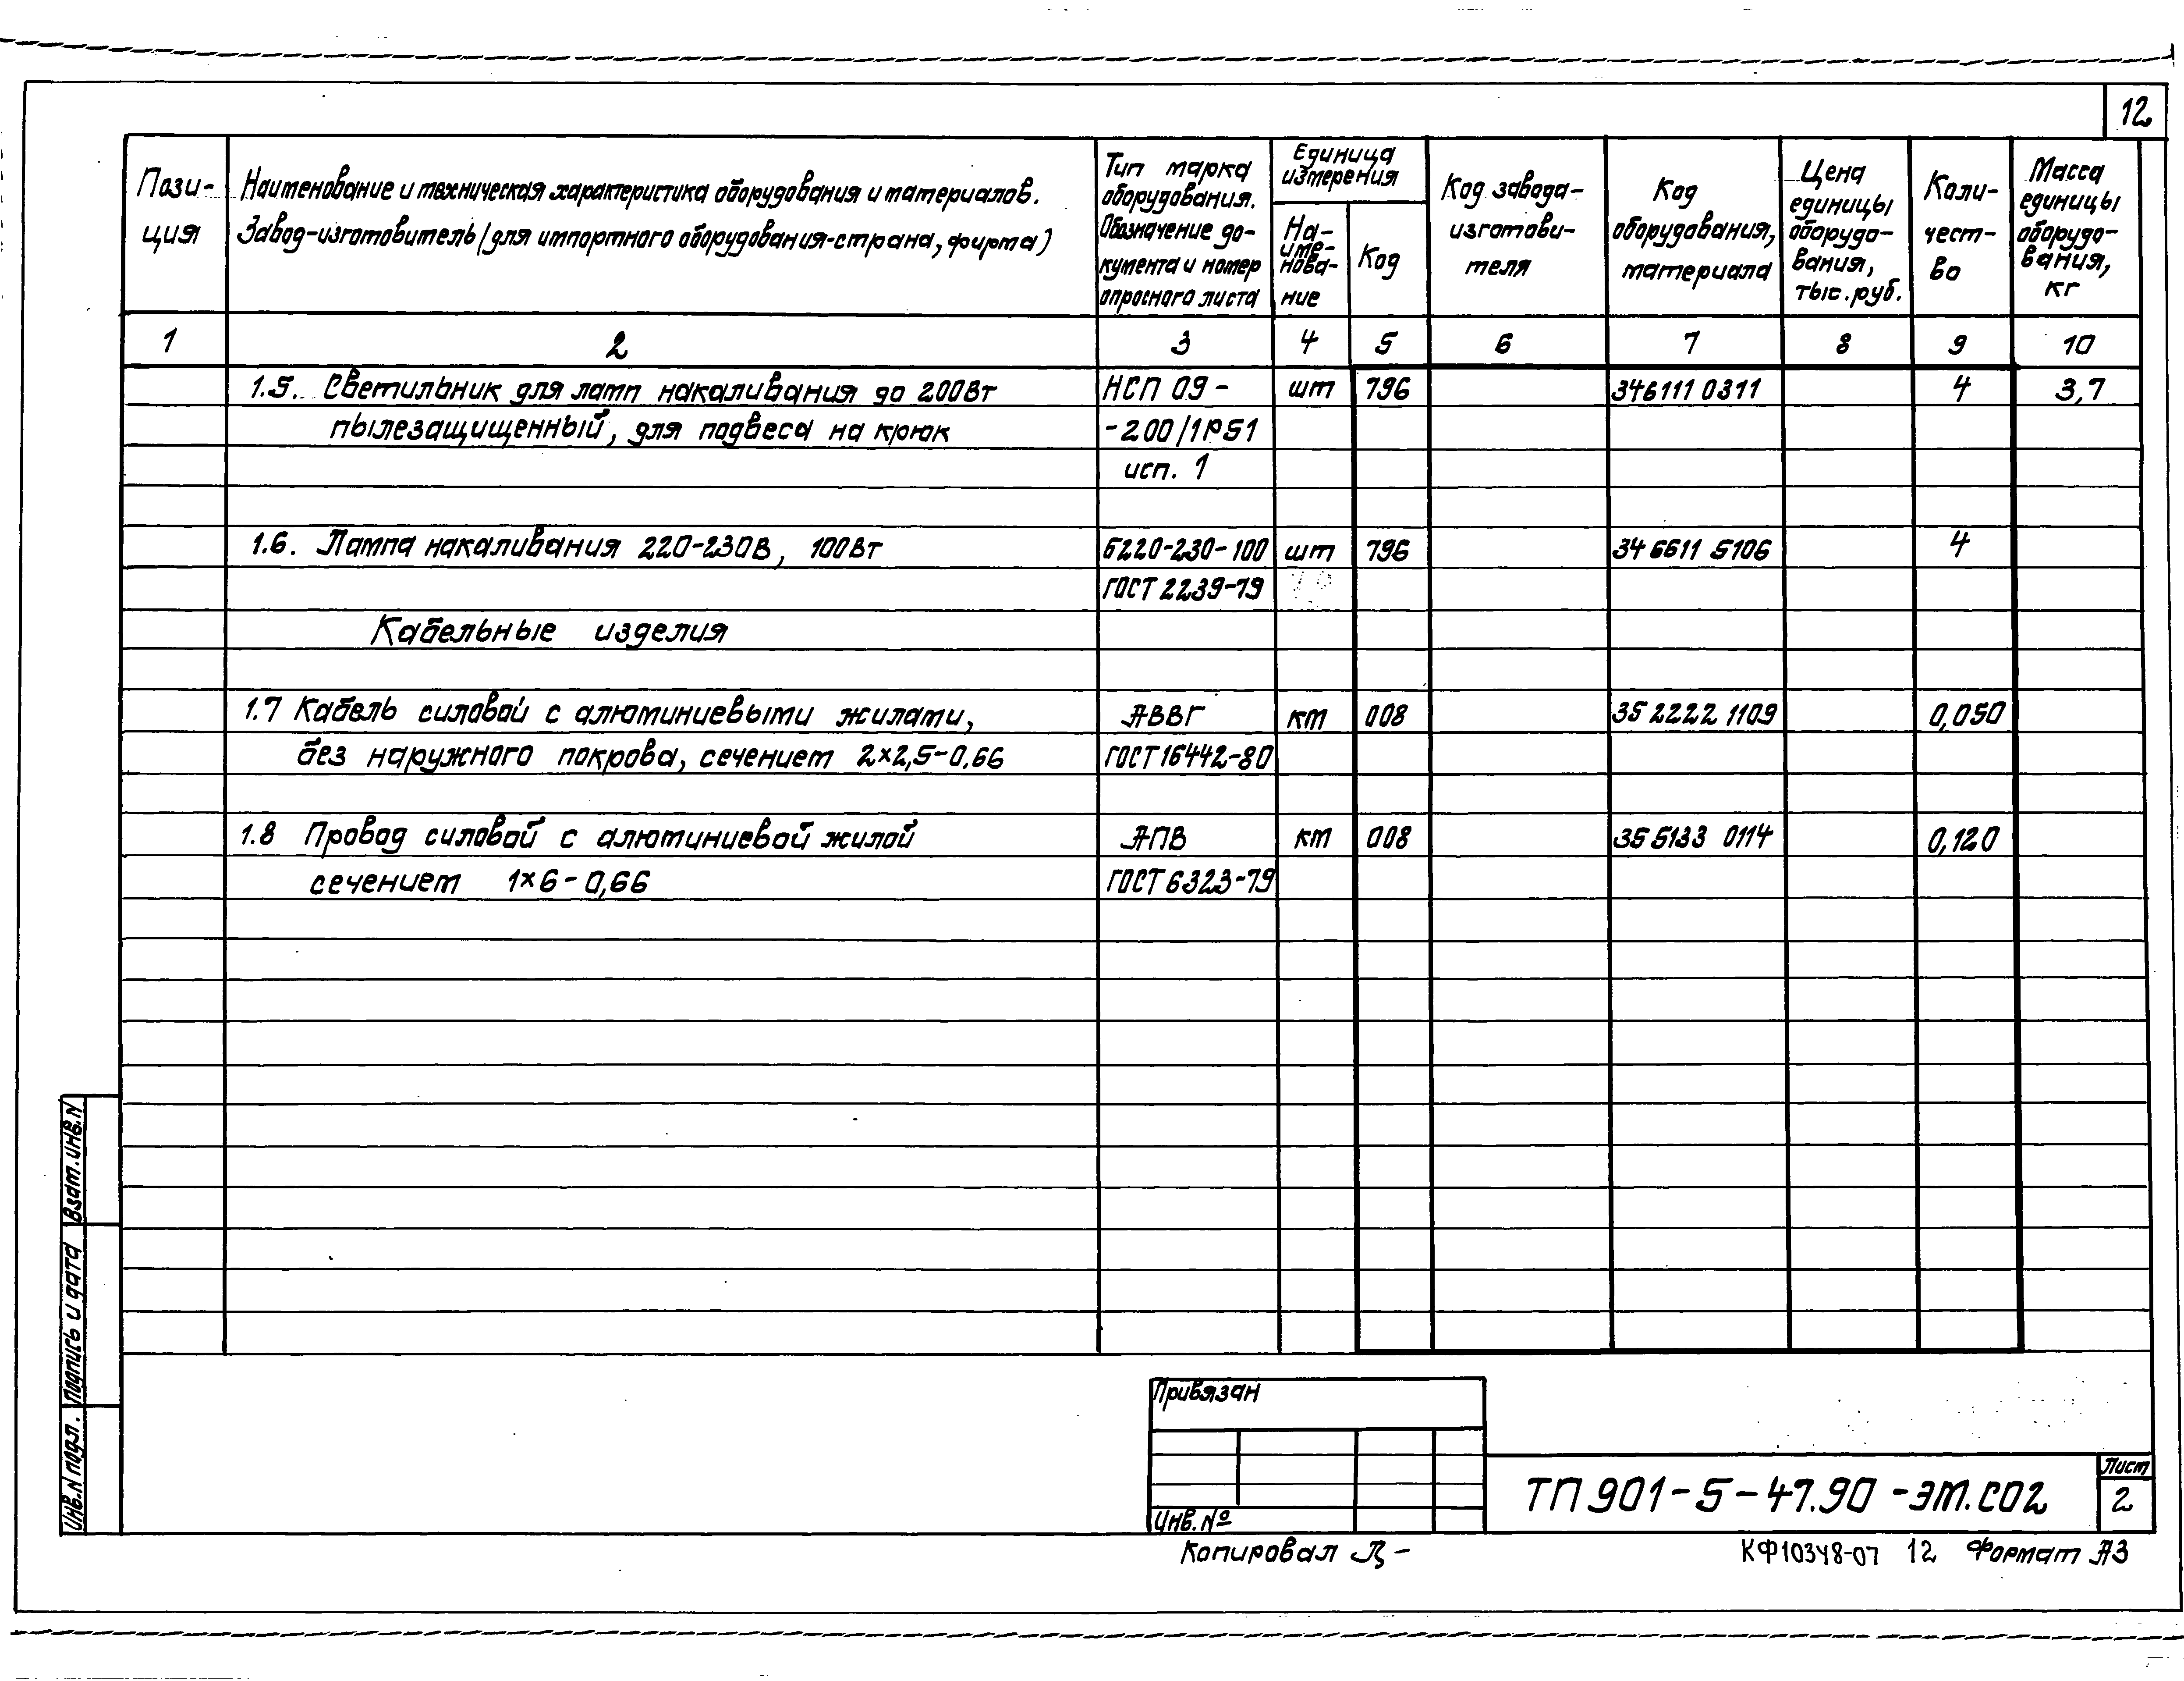 12
Пози-
ция
Наименование и техническая характеристика оборудования и материалов.
Завод-изготовитель (для импортного оборудования-страна, фирма)
Тип марка
оборудования.
Обозначение до-
кумента и номер
опросного листа
Единица
измерения
На-
име-
нова-
ние
Код
Код завода-
изготови-
теля
Код
оборудования,
материала
Цена
единицы
оборудо-
вания,
тыс. руб.
Коли-
чест-
во
Масса
единицы
оборудо-
вания,
кг
1 2 3 4 5 6 7 8 9 10
1.5. Светильник для ламп накаливания до 200Вт НСП 09- шт 796 346111 0311 4 3,7
пылезащищенный, для подвеса на крюк -200/1Р51
исп. 1
1.6. Лампа накаливания 220-230В, 100Вт Б220-230-100 шт 796 34 6611 5106 4
ГОСТ 2239-79
Кабельные изделия
1.7 Кабель силовой с алюминиевыми жилами, АВВГ км 008 35 2222 1109 0,050
без наружного покрова, сечением 2×2,5-0,66 ГОСТ 16442-80
1.8 Провод силовой с алюминиевой жилой АПВ км 008 35 5133 0114 0,120
сечением 1×6-0,66 ГОСТ 6323-79
Взам. инв. N
Подпись и дата
Инв. N подл.
Привязан
Инв. №
ТП 901-5-47.90 -ЭМ.СО2
Лист
2
Копировал
КФ10348-07 12 Формат А3